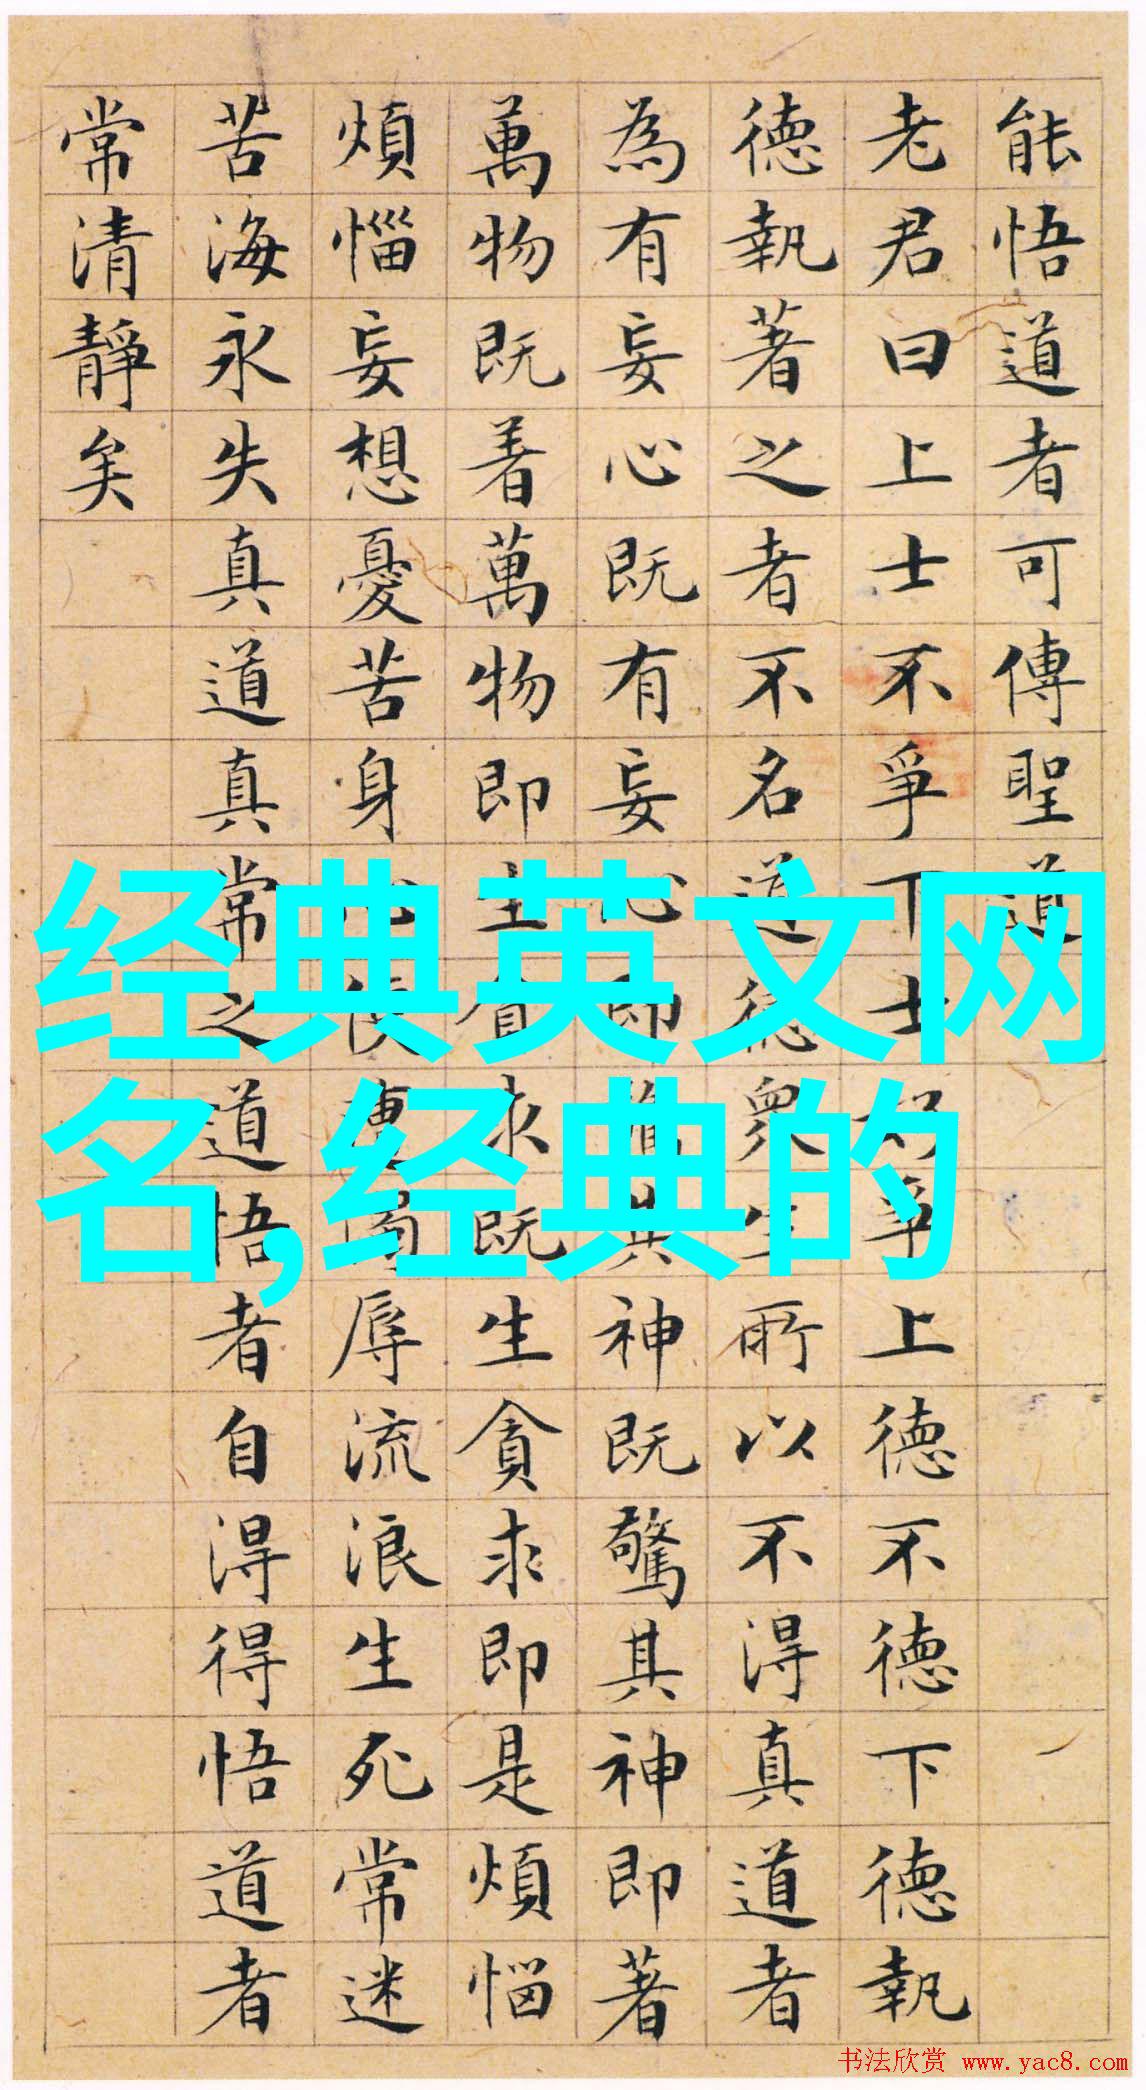 能悟道者可傳聖道
老君曰上士不爭下士好爭上德不德下德執
德執著之者不名道德眾生所以不得真道者
為有妄心既有妄心即驚其神既驚其神即著
萬物既着萬物即生貪求既生貪求即是煩惱
煩惱妄想憂苦身心便遭濁辱流浪生死常迷
苦海永失真道真常之道悟者自得得悟道者
常清靜矣
经典英文网
名,经典的
书法欣赏 www.yac8.com